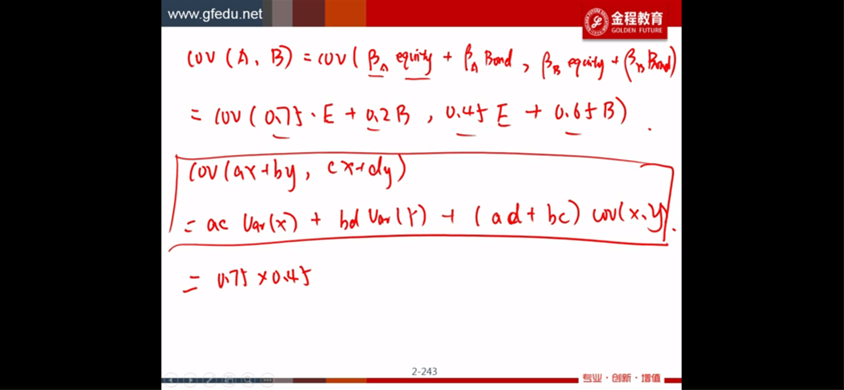 www.gfedu.net
金程教育
GOLDEN FUTURE
COV (A, B) = COV ( βA equity + βA Bond , βB equity + βB Bond)
= COV ( 0.75 · E + 0.2 B , 0.45 E + 0.65 B ) .
COV (ax+by, cx+dy)
= ac Var(x) + bd Var(Y) + (ad + bc) COV(x,y).
= 0.75 × 0.45
2-243
专业·创新·增值